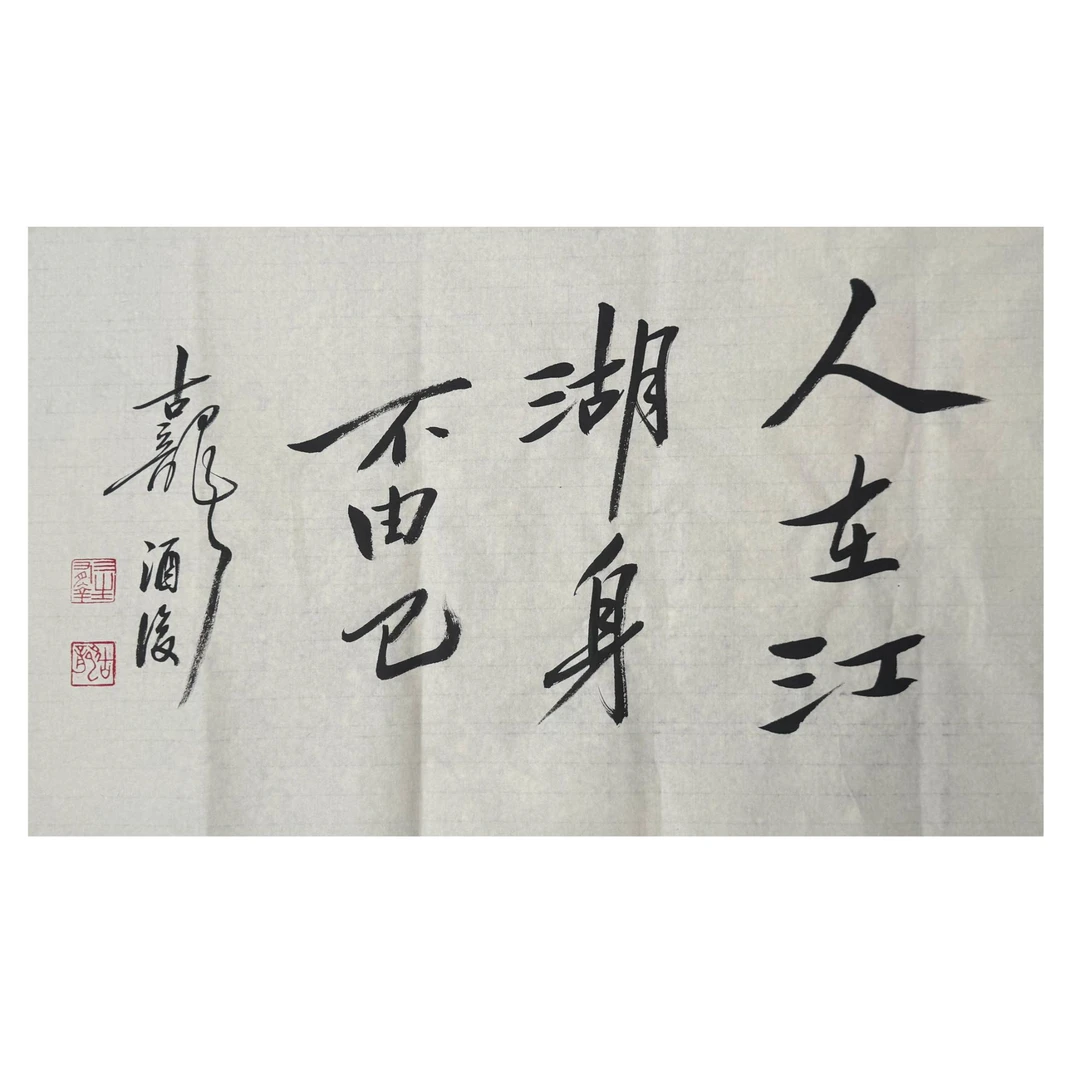 人在江
湖身
不由己
古龍
酒後